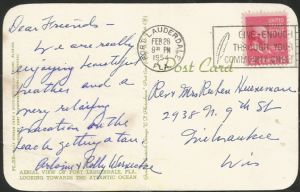 Dear Friends -
We are really
enjoying beautiful
weather and a
very relaxing
vacation on the
beach getting a tan.
Arloine & Rolly
AERIAL VIEW OF FORT LAUDERDALE, FLA.
LOOKING TOWARDS THE ATLANTIC OCEAN
FORT LAUDERDALE
FEB 26
8 PM
1954
FLA.
GIVE-ENOUGH
THROUGH YOUR
COMMUNITY CHEST
Post Card
Rev & Mrs Ruben Huenemann
2938 N. 9th St
Milwaukee
Wis